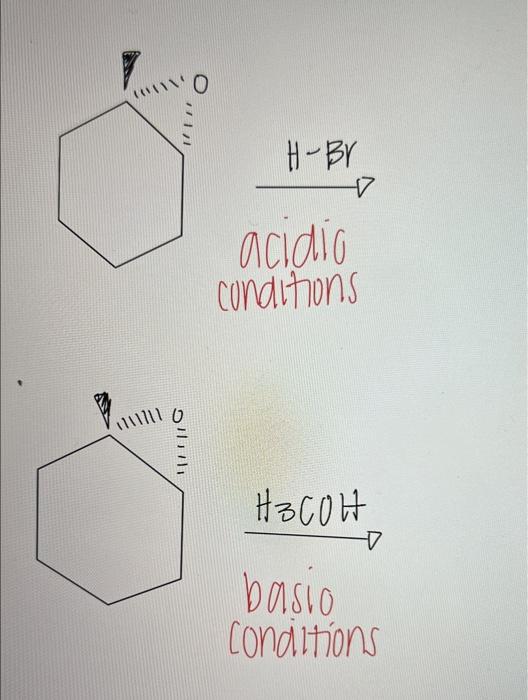 O
H-Br
acidic
conditions
O
H3COH
basic
conditions